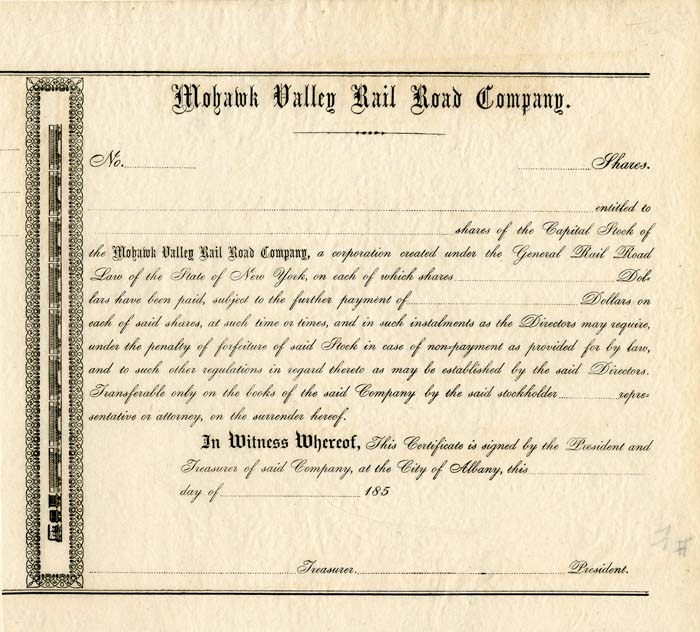 Mohawk Valley Rail Road Company.
No. Shares.
entitled to
shares of the Capital Stock of
the Mohawk Valley Rail Road Company, a corporation created under the General Rail Road
Law of the State of New York, on each of which shares Dol-
lars have been paid, subject to the further payment of Dollars on
each of said shares, at such time or times, and in such instalments as the Directors may require,
under the penalty of forfeiture of said Stock in case of non-payment as provided for by law,
and to such other regulations in regard thereto as may be established by the said Directors.
Transferable only on the books of the said Company by the said stockholder repre-
sentative or attorney, on the surrender hereof.
In Witness Whereof, This Certificate is signed by the President and
Treasurer of said Company, at the City of Albany, this
day of 185
Treasurer. President.